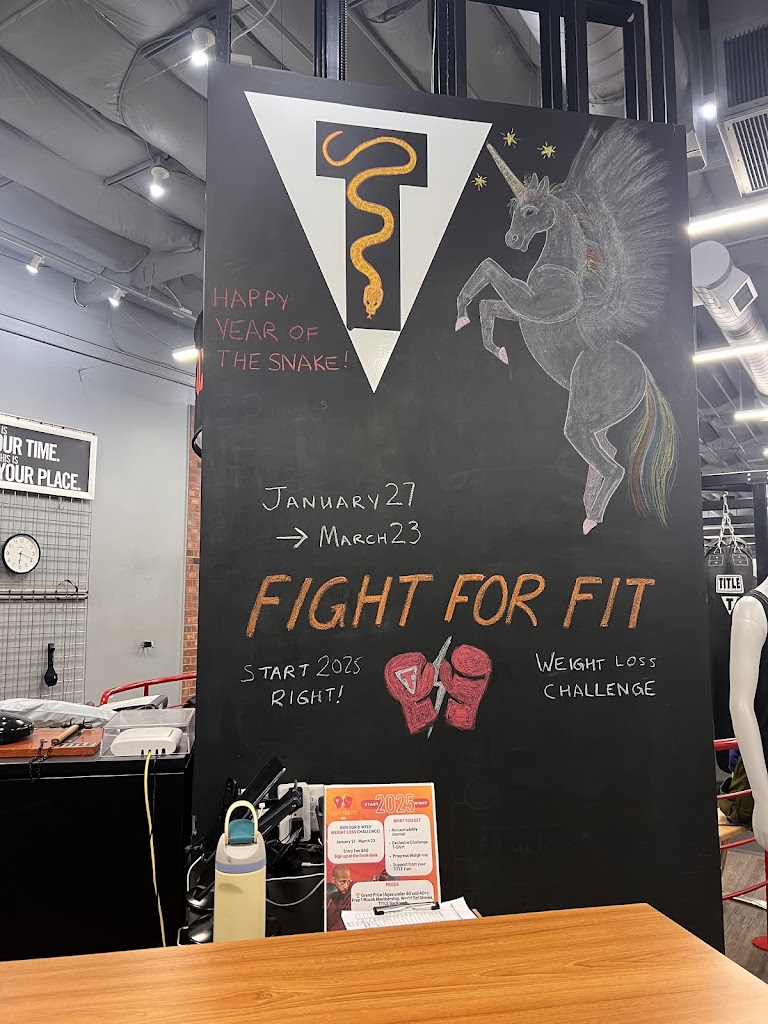 T
HAPPY
YEAR OF
THE SNAKE!
IS
OUR TIME.
THIS IS
YOUR PLACE.
JANUARY 27
→ MARCH 23
FIGHT FOR FIT
START 2025
RIGHT!
WEIGHT LOSS
CHALLENGE
TITLE
T
START 2025 RIGHT
JOIN OUR 8-WEEK
WEIGHT LOSS CHALLENGE!
January 27 - March 23
Entry Fee $40
Sign up at the front desk
WHAT YOU GET
• Accountability
Journal
• Exclusive Challenge
T-Shirt
• Progress Weigh-ins
• Support from your
TITLE Fam
PRIZES
Grand Prize (Ages under 40 and 40+):
Free 1 Month Membership,